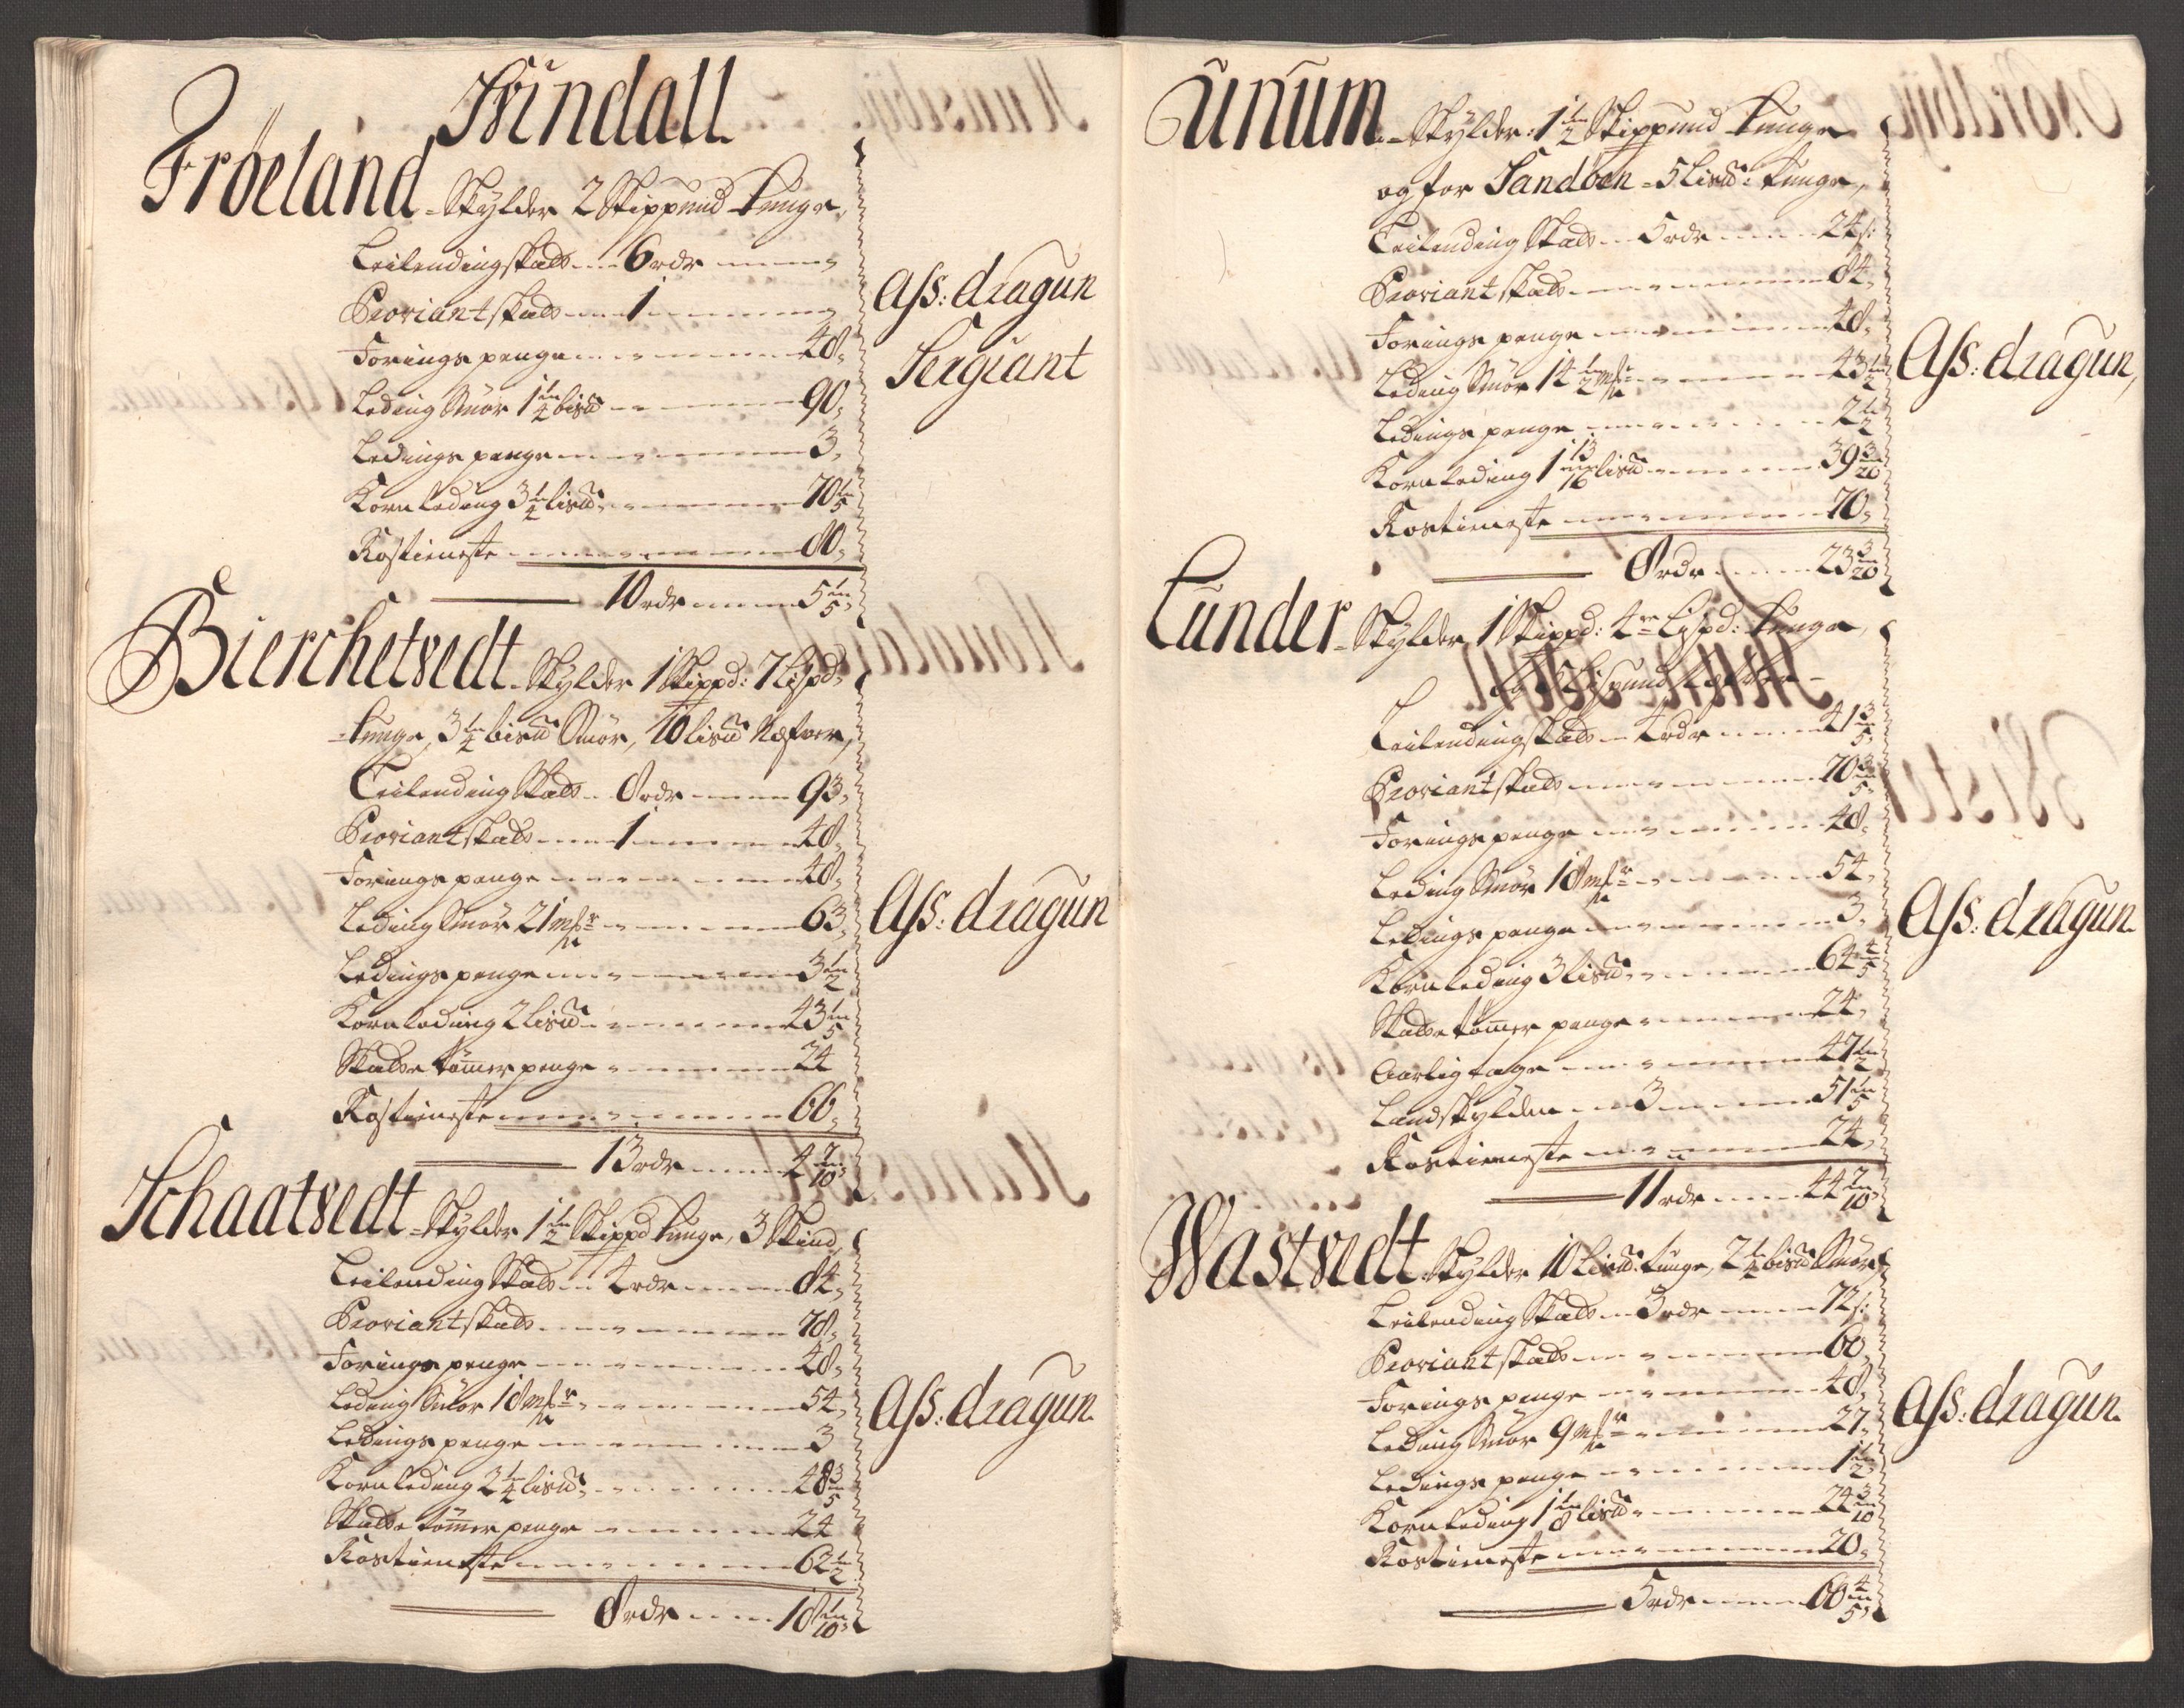 Svindall
Frøeland Skylder 2 Skippund tunge,
Leilending skats 6 rdr
Proviant skats 1
Forings penge 48
Leding Smør 1 1/4 bisd 90
Ledings penge 3
Korn Leding 3 1/4 lisd 70 1/5
Rostieneste 80
10 rdr 5 1/5
Ass: dragun
Sergiant
Bierchetvedt Skylder 1 Skippd: 7 Lispd
tunge, 3 1/4 bisd Smør, 10 lisd Nefver,
Leilending Skats 8 rdr 93
Proviant skats 1 48
Forings penge 48
Leding Smør 21 mr 63
Ledings penge 3 1/2
Korn Leding 2 lisd 43 1/5
Skatte tømmer penge 24
Rostieneste 66
13 rdr 4 7/10
Ass: dragun
Schaatvedt Skylder 1 1/2 Skippd tunge, 3 Skind
Leilending Skats 4 rdr 84
Proviant skats 78
Forings penge 48
Leding Smør 18 mr 54
Ledings penge 3
Korn Leding 2 1/4 lisd 48 3/5
Skatte tømmer penge 24
Rostieneste 62 1/2
8 rdr 18 1/10
Ass: dragun
Lunum Skylder: 1 1/2 Skippund tunge
og for Sandøen 5 Lisd: tunge,
Leilending Skats 5 rdr 24 s:
Proviant skats 84
Forings penge 48
Leding Smør 14 1/2 mr 43 1/2
Ledings penge 2 1/2
Korn Leding 1 13/16 lisd 39 3/20
Rostieneste 70
8 rdr 23 3/20
Ass: dragun,
Lunder Skylder 1 Skippd: 4re Lispd: tunge
Leilending skats 4 rdr 41 3/5
Proviant skats 70 3/5
Forings penge 48
Leding Smør 18 mr 54
Ledings penge 3
Korn Leding 3 lisd 64 4/5
Skatte tømmer penge 24
Aarlig tage 47 1/2
Landskylden 3 51 1/5
Rostieneste 24
11 rdr 44 7/10
Ass: dragun.
Wastvedt Skylder 10 Lisd: tunge, 2 1/4 bisd Smør
Leilending Skats 3 rdr 72 s:
Proviant skats 60
Forings penge 48
Leding Smør 9 mr 27
Ledings penge 1 1/2
Korn Leding 1 1/8 lisd 24 3/10
Rostieneste 20
5 rdr 60 4/5
Ass: dragun.